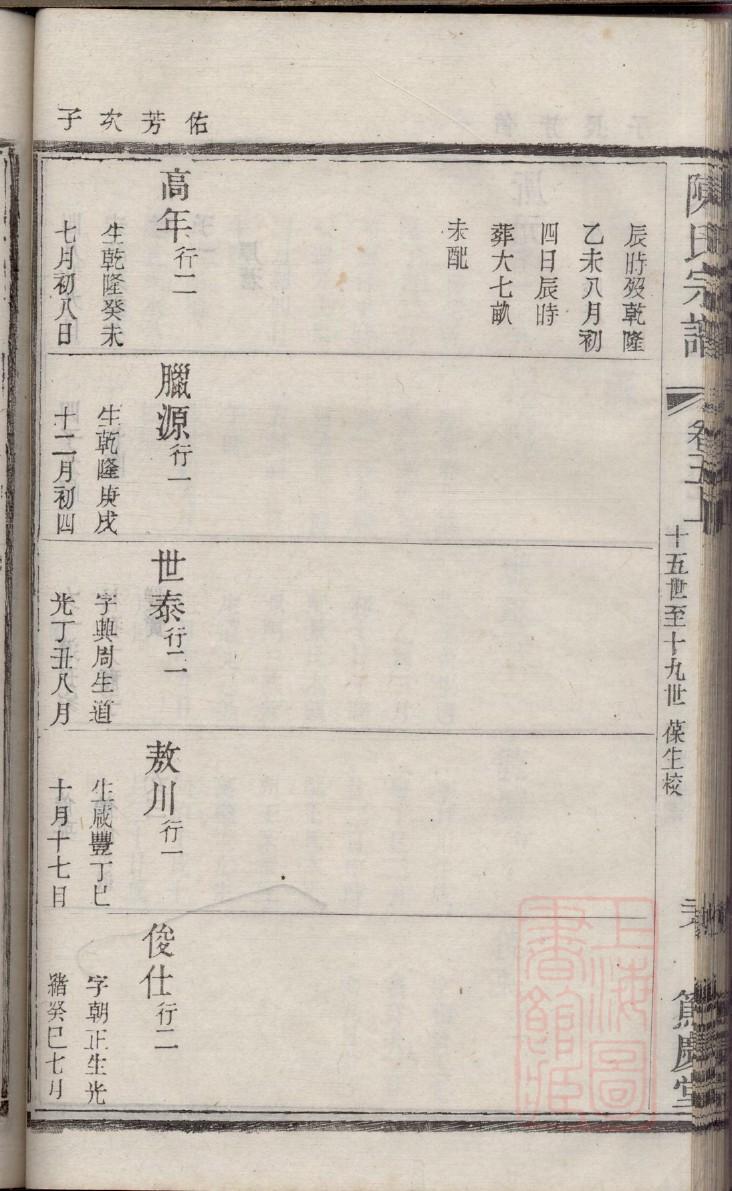 陳氏宗譜
卷五上
十五世至十九世 葆生校
篤慶堂
佑芳次子
辰時歿乾隆
乙未八月初
四日辰時
葬大七畝
未配
高年行二
生乾隆癸未
七月初八日
臘源行一
生乾隆庚戌
十二月初四
世泰行二
字興周生道
光丁丑八月
敖川行一
生咸豐丁巳
十月十七日
俊仕行二
字朝正生光
緒癸巳七月
上海圖書館藏